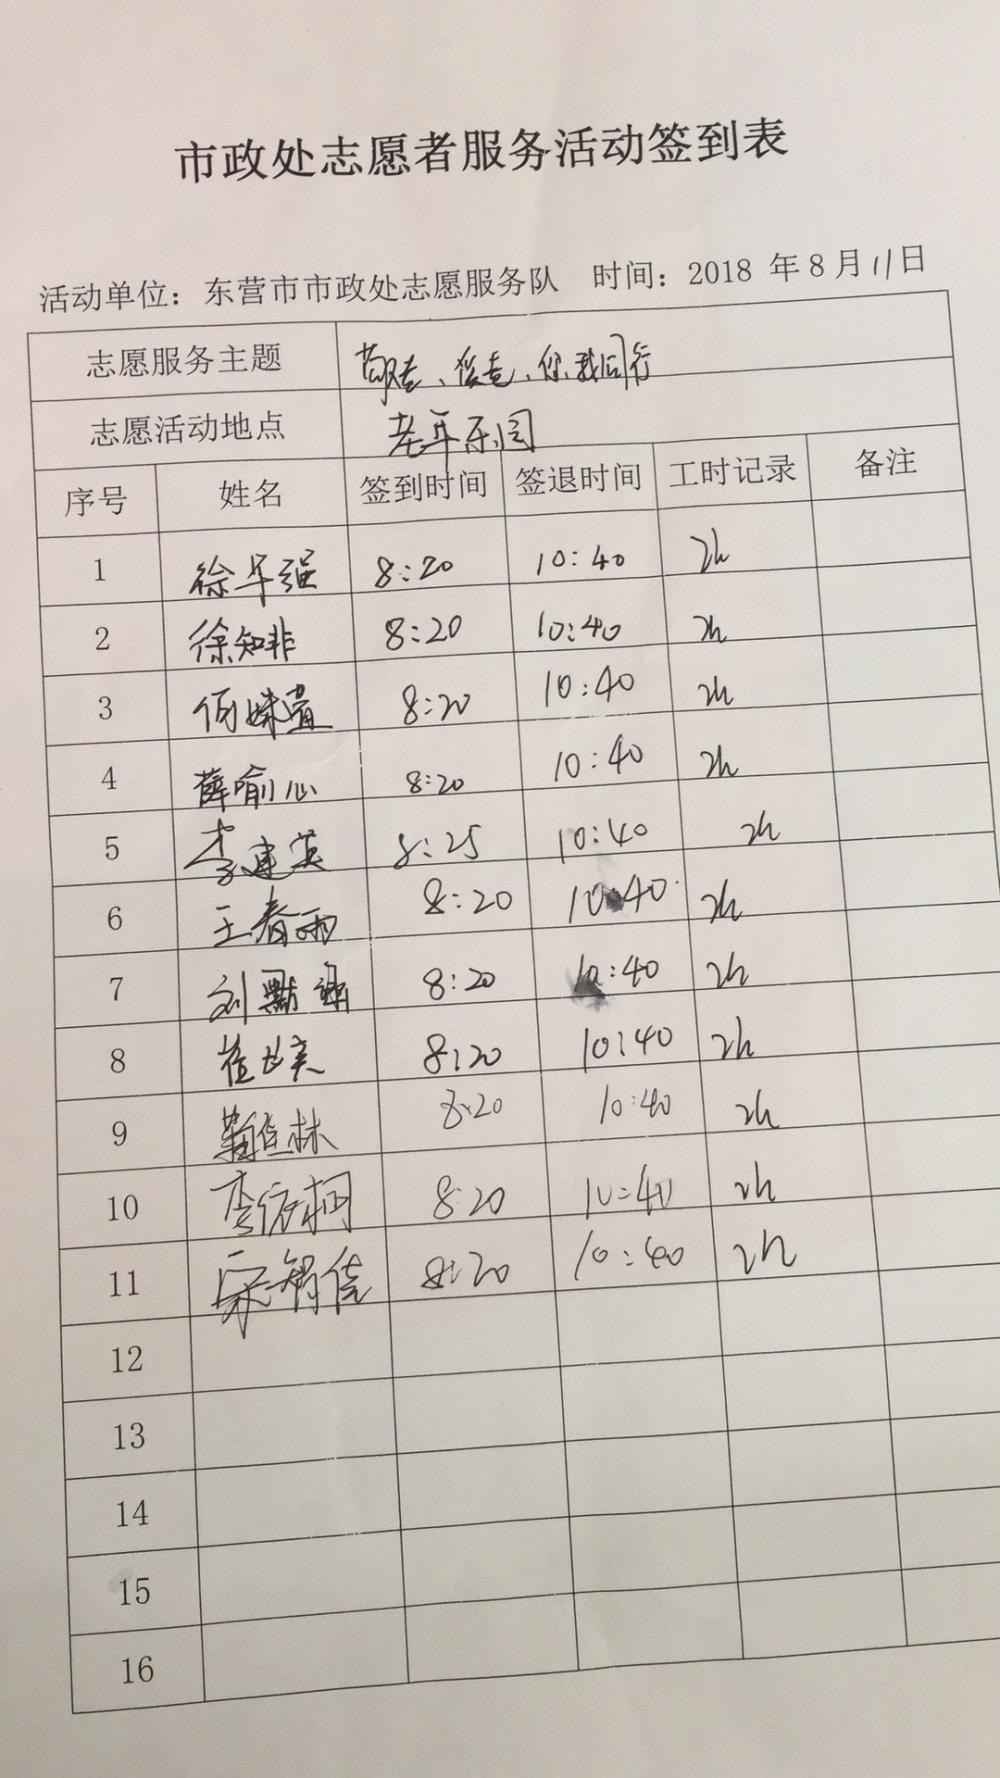 市政处志愿者服务活动签到表
活动单位：东营市市政处志愿服务队 时间：2018 年 8 月 11 日
志愿服务主题 敬老、爱老、你我同行
志愿活动地点 老年乐园
序号 姓名 签到时间 签退时间 工时记录 备注
1 徐军强 8:20 10:40 2h
2 徐知非 8:20 10:40 2h
3 8:20 10:40 2h
4 薛喻心 8:20 10:40 2h
5 李建英 8:25 10:40 2h
6 王春雨 8:20 10:40 2h
7 刘 8:20 10:40 2h
8 8:20 10:40 2h
9 8:20 10:40 2h
10 李依桐 8:20 10:40 2h
11 宋智信 8:20 10:40 2h
12
13
14
15
16